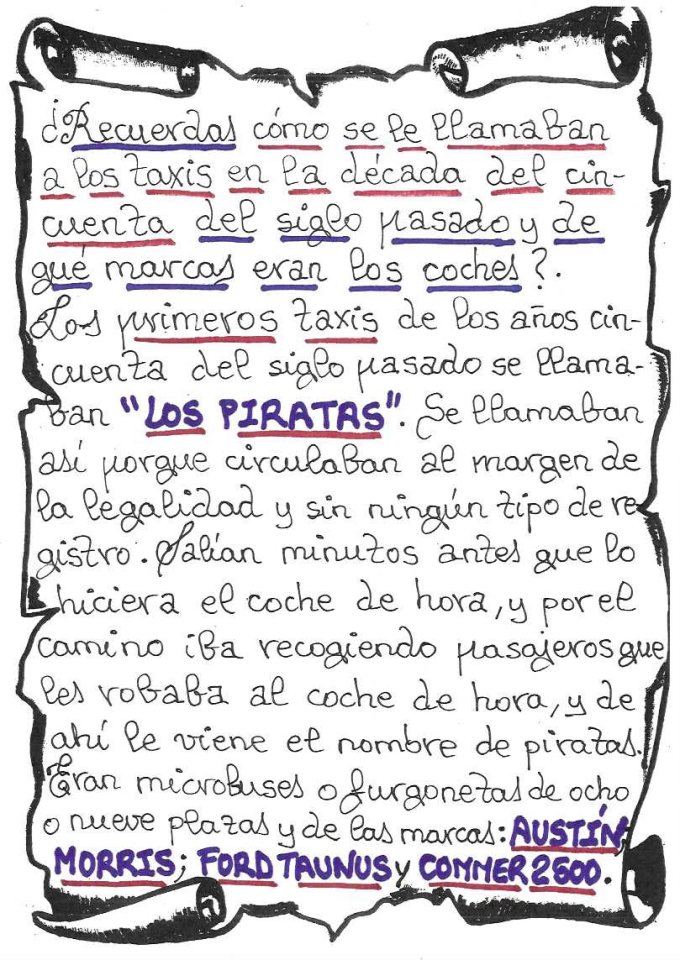 ¿Recuerdas cómo se le llamaban
a los taxis en la década del cin-
cuenta del siglo pasado y de
qué marcas eran los coches?.
Los primeros taxis de los años cin-
cuenta del siglo pasado se llama-
ban "LOS PIRATAS". Se llamaban
así porque circulaban al margen de
la legalidad y sin ningún tipo de re
gistro. Salían minutos antes que lo
hiciera el coche de hora, y por el
camino iba recogiendo pasajeros que
les robaba al coche de hora, y de
ahí le viene el nombre de piratas.
Eran microbuses o furgonetas de ocho
o nueve plazas y de las marcas: AUSTÍN;
MORRIS; FORD TAUNUS y COMMER 2500.